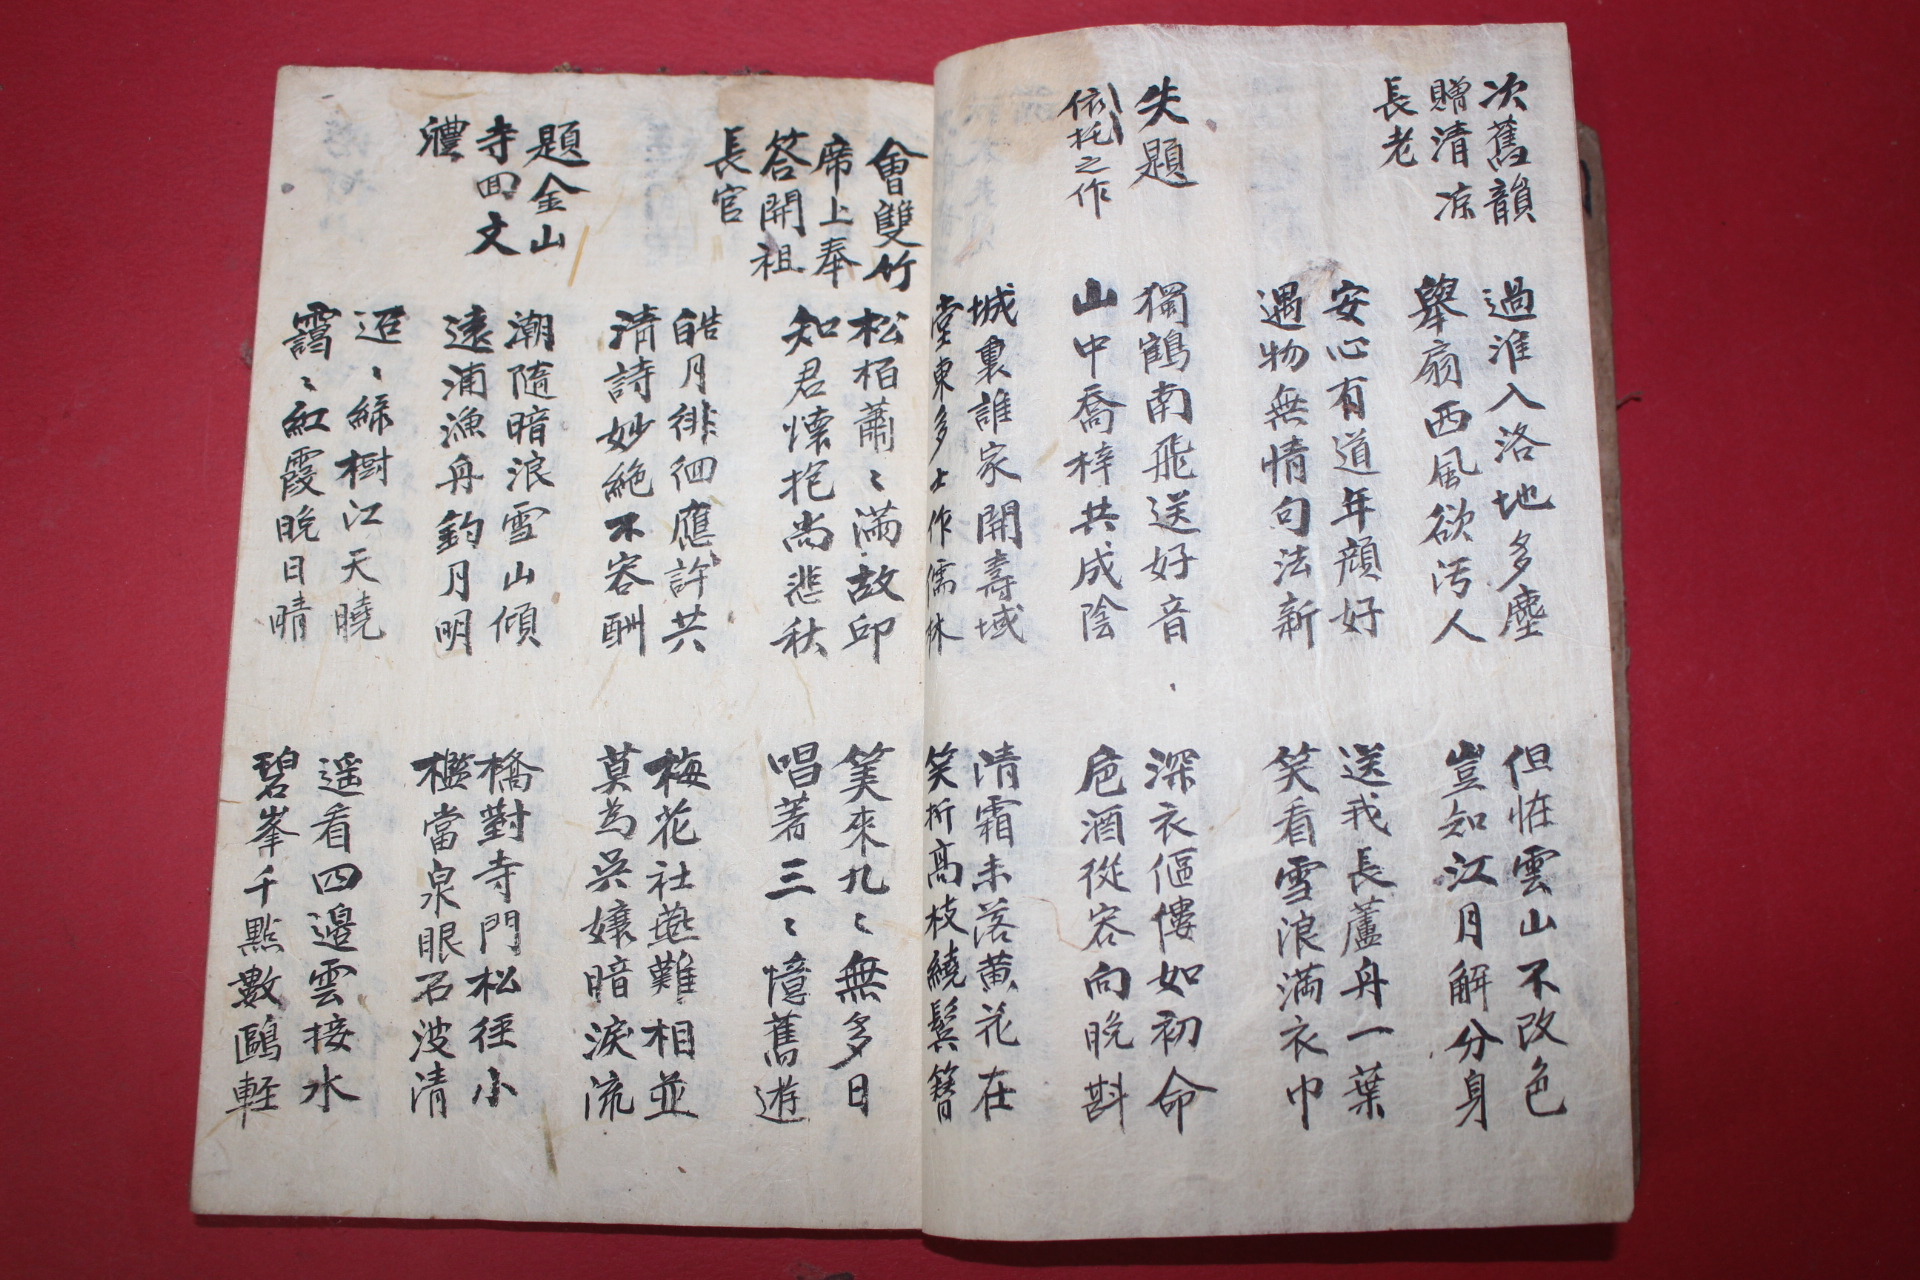 次舊韻
贈清凉
長老
過淮入洛地多塵
舉扇西風欲汚人
但恠雲山不改色
豈知江月解分身
安心有道年顔好
遇物無情句法新
送我長蘆舟一葉
笑看雪浪滿衣巾
失題
依托之作
獨鶴南飛送好音
山中喬梓共成陰
深衣傴僂如初命
巵酒從容向晩斟
城裏誰家開壽域
堂東多士作儒林
清霜未落黄花在
笑折高枝繞鬂簪
會雙竹
席上奉
答開祖
長官
松栢蕭〻滿故邱
知君懷抱尚悲秋
筭來九〻無多日
唱著三〻憶舊遊
皓月徘徊應許共
清詩妙絶不容酬
梅花社燕難相並
莫為吳孃暗淚流
題金山
寺回文
軆
潮隨暗浪雪山傾
遠浦漁舟釣月明
橋對寺門松徑小
檻當泉眼石波清
迢〻綠樹江天曉
靄〻紅霞晩日晴
遥看四邉雲接水
碧峯千點數鷗軽